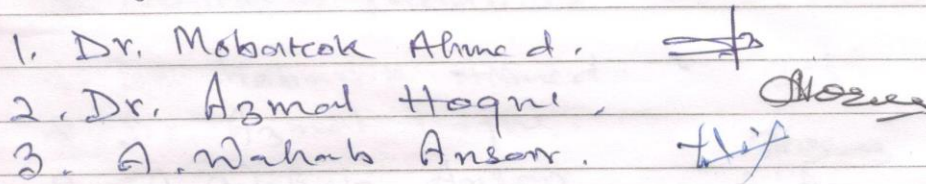 1. Dr. Mobarak Ahmed.
2. Dr. Azmal Hoque.
3. A. Wahab Ansari.